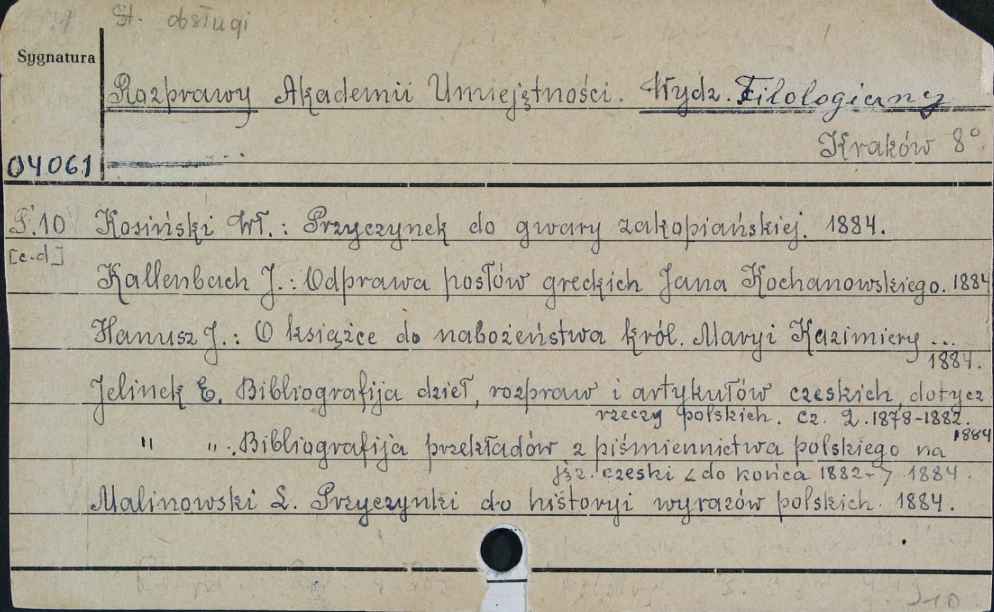 St. obsługi
Sygnatura
Rozprawy Akademii Umiejętności. Wydz. Filologiczny
Kraków 8°
04061
T.10 Kosiński Wł.: Przyczynek do gwary zakopiańskiej. 1884.
[c.d]
Kallenbach J.: Odprawa posłów greckich Jana Kochanowskiego. 1884
Hanusz J.: O książce do nabożeństwa król. Maryi Kazimiery ...
1884.
Jelinek E. Bibliografija dzieł, rozpraw i artykułów czeskich, dotycz.
rzeczy polskich. cz. 2. 1878-1882.
1884
" " . Bibliografija przekładów z piśmiennictwa polskiego na
jęz. czeski < do końca 1882- > 1884.
Malinowski L. Przyczynki do historyi wyrazów polskich. 1884.